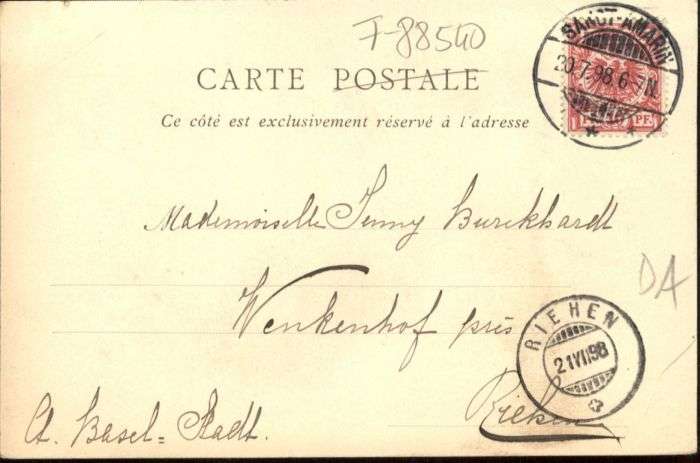 F-88540
SANCT-AMARIN
20.7.98.6-7N.
PF.
CARTE POSTALE
Ce côté est exclusivement réservé à l'adresse
Mademoiselle Jenny Burckhardt
Wenkenhof près
Riehen
Ct. Basel=Stadt.
RIEHEN
21VII98
DA